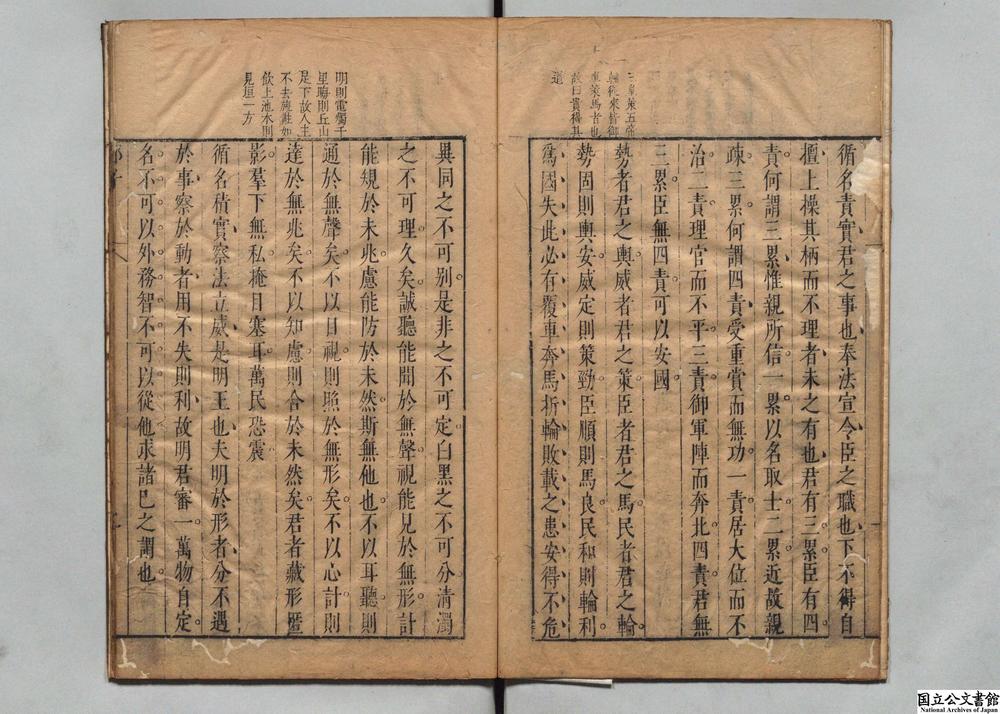 三皇策五帝
輪從來皆御
重策馬者也
故曰貴得其
道
循名責實君之事也奉法宣令臣之職也下不得自
擅上操其柄而不理者未之有也君有三累臣有四
責何謂三累惟親所信一累以名取士二累近故親
疎三累何謂四責受重賞而無功一責居大位而不
治二責理官而不平三責御軍陣而奔北四責君無
三累臣無四責可以安國
勢者君之輿威者君之策臣者君之馬民者君之輪
勢固則輿安威定則策勁臣順則馬良民和則輪利
爲國失此必有覆車奔馬折輪敗載之患安得不危
明則電燭千
里晦則丘山
是下故人主
不去薙鮭如
飲上池水則
見垣一方
異同之不可别是非之不可定白黑之不可分清濁
之不可理久矣誠聽能聞於無聲視能見於無形計
能規於未兆慮能防於未然斯無他也不以耳聽則
通於無聲矣不以目視則照於無形矣不以心計則
達於無兆矣不以知慮則合於未然矣君者藏形匿
影羣下無私掩目塞耳萬民恐震
循名積實察法立威是明王也夫明於形者分不遇
於事察於動者用不失則利故明君審一萬物自定
名不可以外務智不可以從他求諸已之謂也
国立公文書館
National Archives of Japan